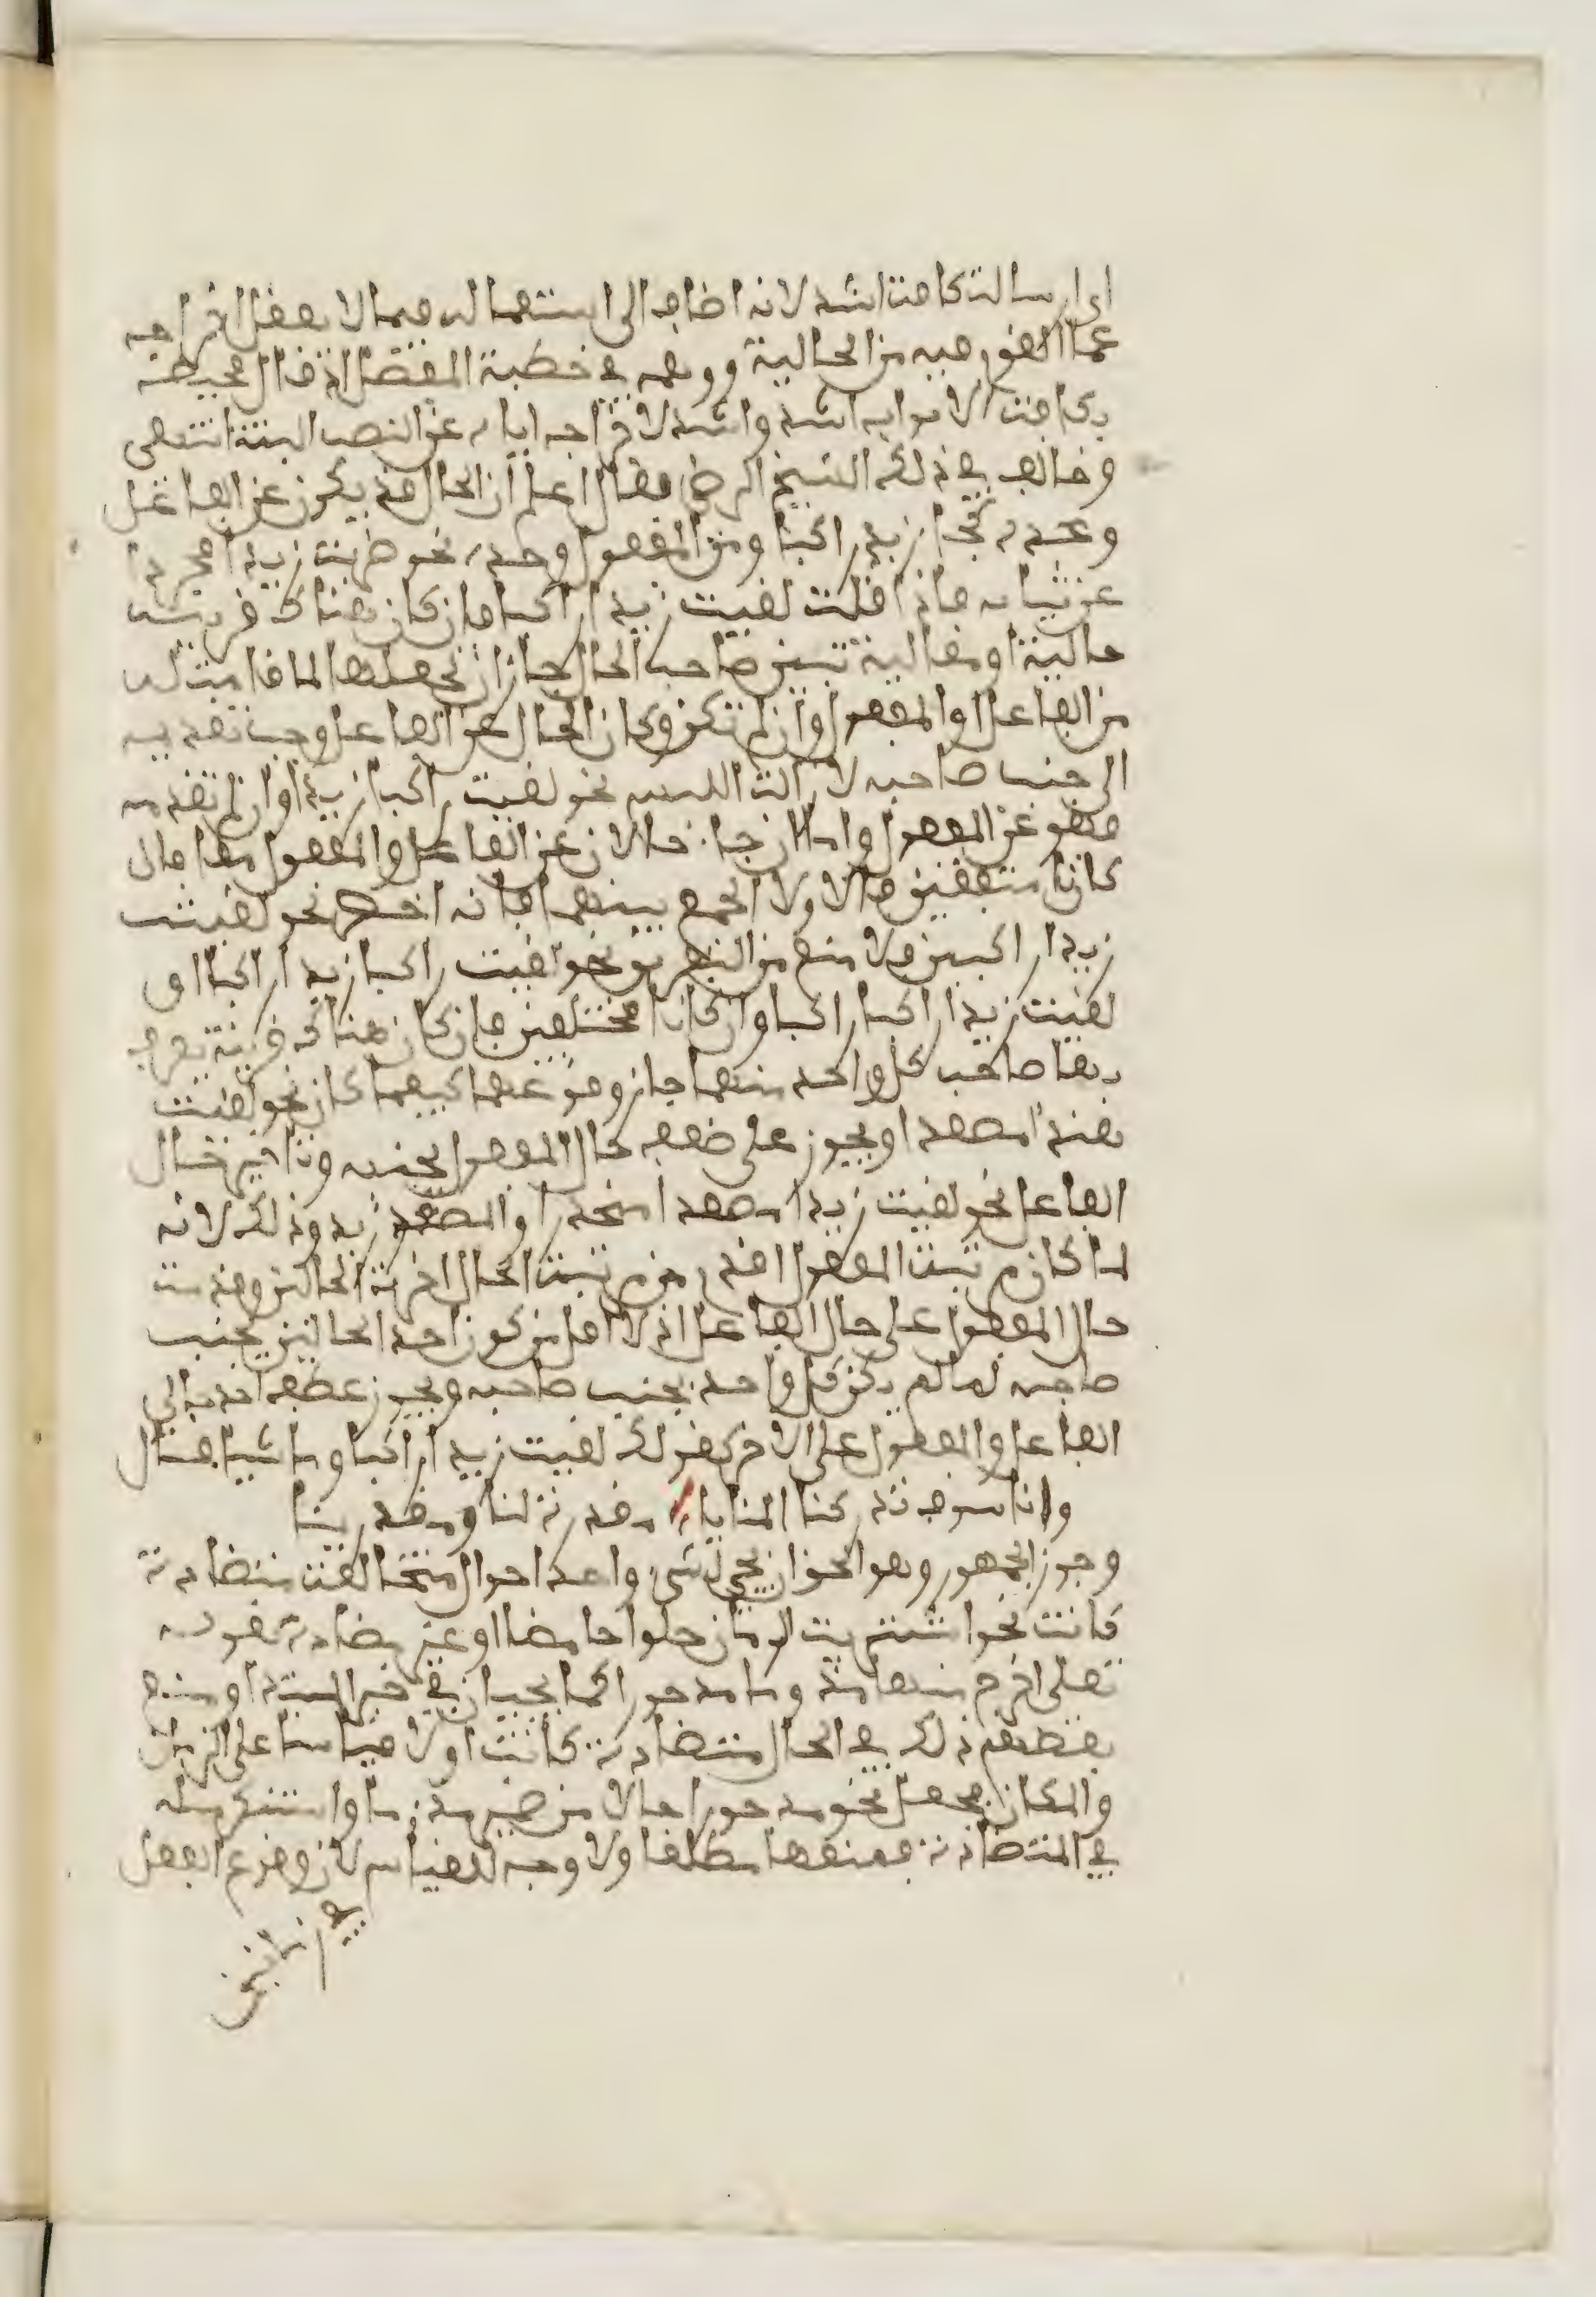 اي ارسالة كافة اشد لانه اضاف الى استعماله فيما لا يعقل اخراجه
عما التزم فيه من الحالية ووهمه في خطبة المفصل اذ قال محيط
بكافة الابواب اشد واشد لاخراجه اياه عن النصب البتة انتهى
وخالف في ذلك الشيخ الرضي فقال اعلم ان الحال قد يكون عن الفاعل
وحده كجاء زيد راكبا وعن المفعول وحده نحو ضربت زيدا مجردا
عن ثيابه فاذا قلت لقيت زيدا راكبا فان كان هناك قرينة
حالية او مقالية تبين صاحب الحال جاز ان تجعلها لما قامت له
من الفاعل او المفعول وان لم تكن وكان الحال عن الفاعل وجب تقديمه
الى جنب صاحبه لازالة اللبس نحو لقيت راكبا زيدا وان لم تقدمه
فهو عن المفعول واما ان جاء حالان عن الفاعل والمفعول معا فان
كانا متفقين فالاولى الجمع بينهما فانه اخصر نحو لقيت
زيدا راكبين ولا منع من التفريق نحو لقيت راكبا زيدا راكبا او
لقيت زيدا راكبا راكبا وان كانا مختلفين فان كان هناك قرينة يعرف
بها صاحب كل واحد منهما جاز وقوعهما كيفما كان نحو لقيت
هندا مصعدا ويجوز على ضعف حال المفعول بجنبه وتاخير حال
الفاعل نحو لقيت زيدا مصعدا منحدرا والمصعد زيد وذلك لانه
لما كان مرتبة المفعول اقدم من مرتبة الحال اخرت الحالين وقدمت
حال المفعول على حال الفاعل اذ لا اقل من كون احد الحالين بجنب
صاحبه لما لم يكن كل واحد بجنب صاحبه ويجوز عطف احد حالي
الفاعل والمفعول على الاخر كقولك لقيت زيدا راكبا وماشيا قال
وانا سوف تدركنا المنايا مقدرة لنا ومقدرينا
وجوز الجمهور وهو الحق ان يجيء لشيء واحد احوال متخالفة متضادة
كانت نحو اشتريت الرمان حلوا حامضا او غير متضادة كقوله
تعلى اخرج منها مذءوما مدحورا كما يجيئان في خبر المبتدا ومنع
بعضهم ذلك في الحال متضادة كانت او لا قياسا على الزمان
والمكان فجعل نحو مدحورا حالا من ضمير مذءوما واستنكر مثله
في المتضادة فمنعها مطلقا ولا وجه للقياس لان وقوع الفعل